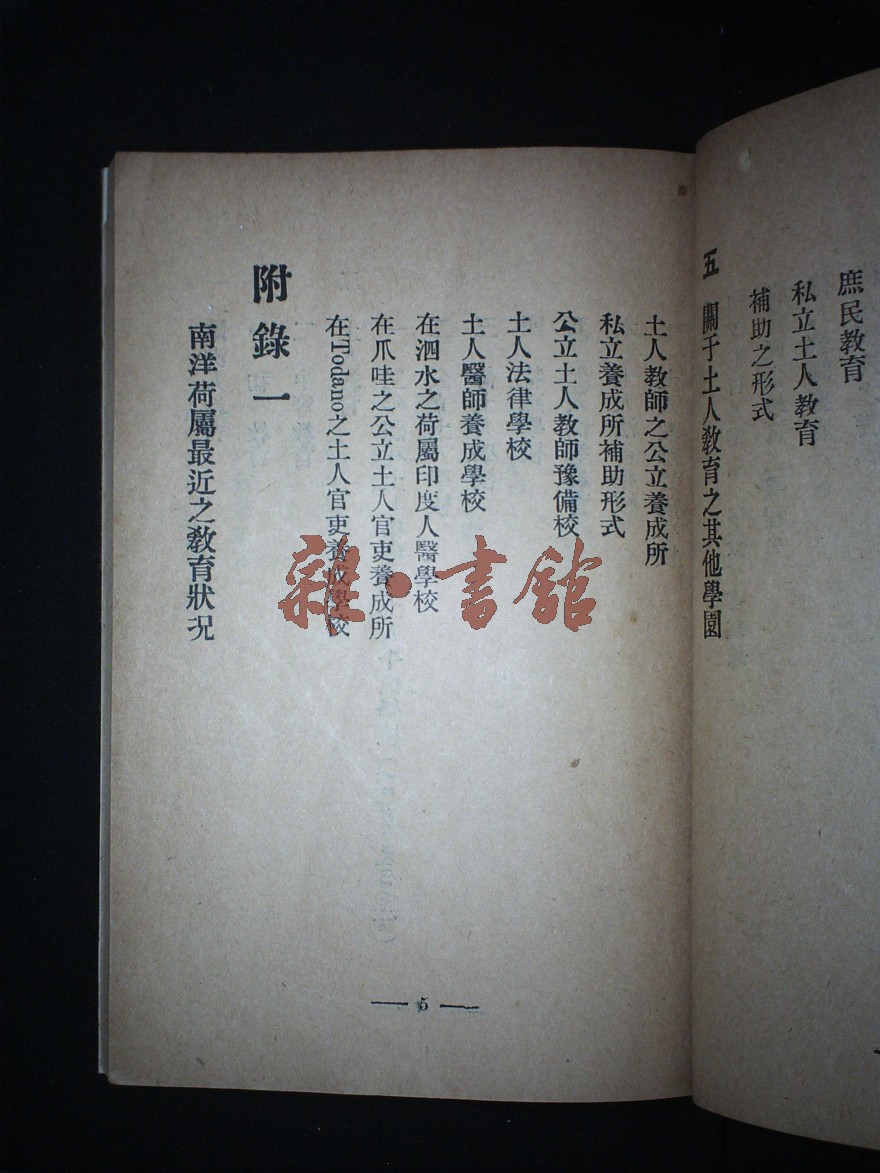 庶民教育
私立土人教育
補助之形式
五 關于土人敎育之其他學園
土人教師之公立養成所
私立養成所補助形式
公立土人教師豫備校
土人法律學校
土人醫師養成學校
在泗水之荷屬印度人醫學校
在爪哇之公立土人官吏養成所
在Todano之土人官吏養成學校
附錄一
南洋荷屬最近之敎育狀况
— 5 —
雜·書館